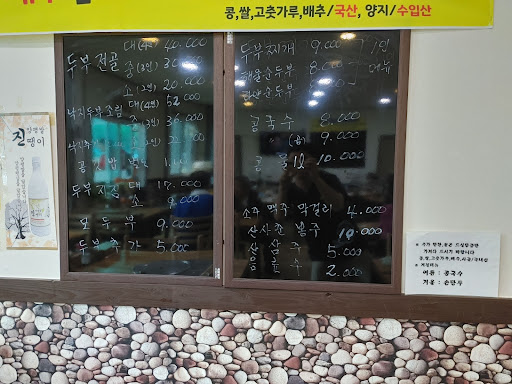 콩,쌀,고춧가루,배추/국산, 양지/수입산
두부전골 대(4인) 40.000
중(3인) 30.000
소(2인) 20.000
낙지두부조림 대(4인) 52.000
중(3인) 36.000
두부지짐 대 17.000
소 9.000
모두부 9.000
두부추가 5.000
두부찌개 9.000 1인
해물순두부 8.000 메뉴
순두부 8.000
콩국수 8.000
9.000
콩물 1인 10.000
소주 맥주 막걸리 4.000
산사춘 봉주 10.000
산삼주 5.000
음료수 2.000
진땡이
여름 : 콩국수
겨울 : 손만두